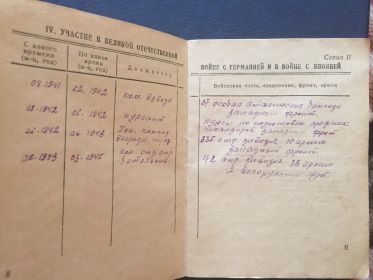 IV. УЧАСТИЕ В ВЕЛИКОЙ ОТЕЧЕСТВЕННОЙ
С какого времени (м-ц, год)
По какое время (м-ц, год)
Должность
08.1941
02.1942
ком. взвода
02.1942
05.1942
курсант
05.1942
04.1943
04.1943
03.1945
батальона
8
Серия II
ВОЙНЕ С ГЕРМАНИЕЙ И В ВОЙНЕ С ЯПОНИЕЙ
Войсковая часть, соединение, фронт, армия
особая бригада
Западный фронт.
Курсы по подготовке средних
командиров Западн. фронт
дивизия 10 армии
Западный фронт
172 стр. дивизия 33 армии
2 Белорусский фронт.
9